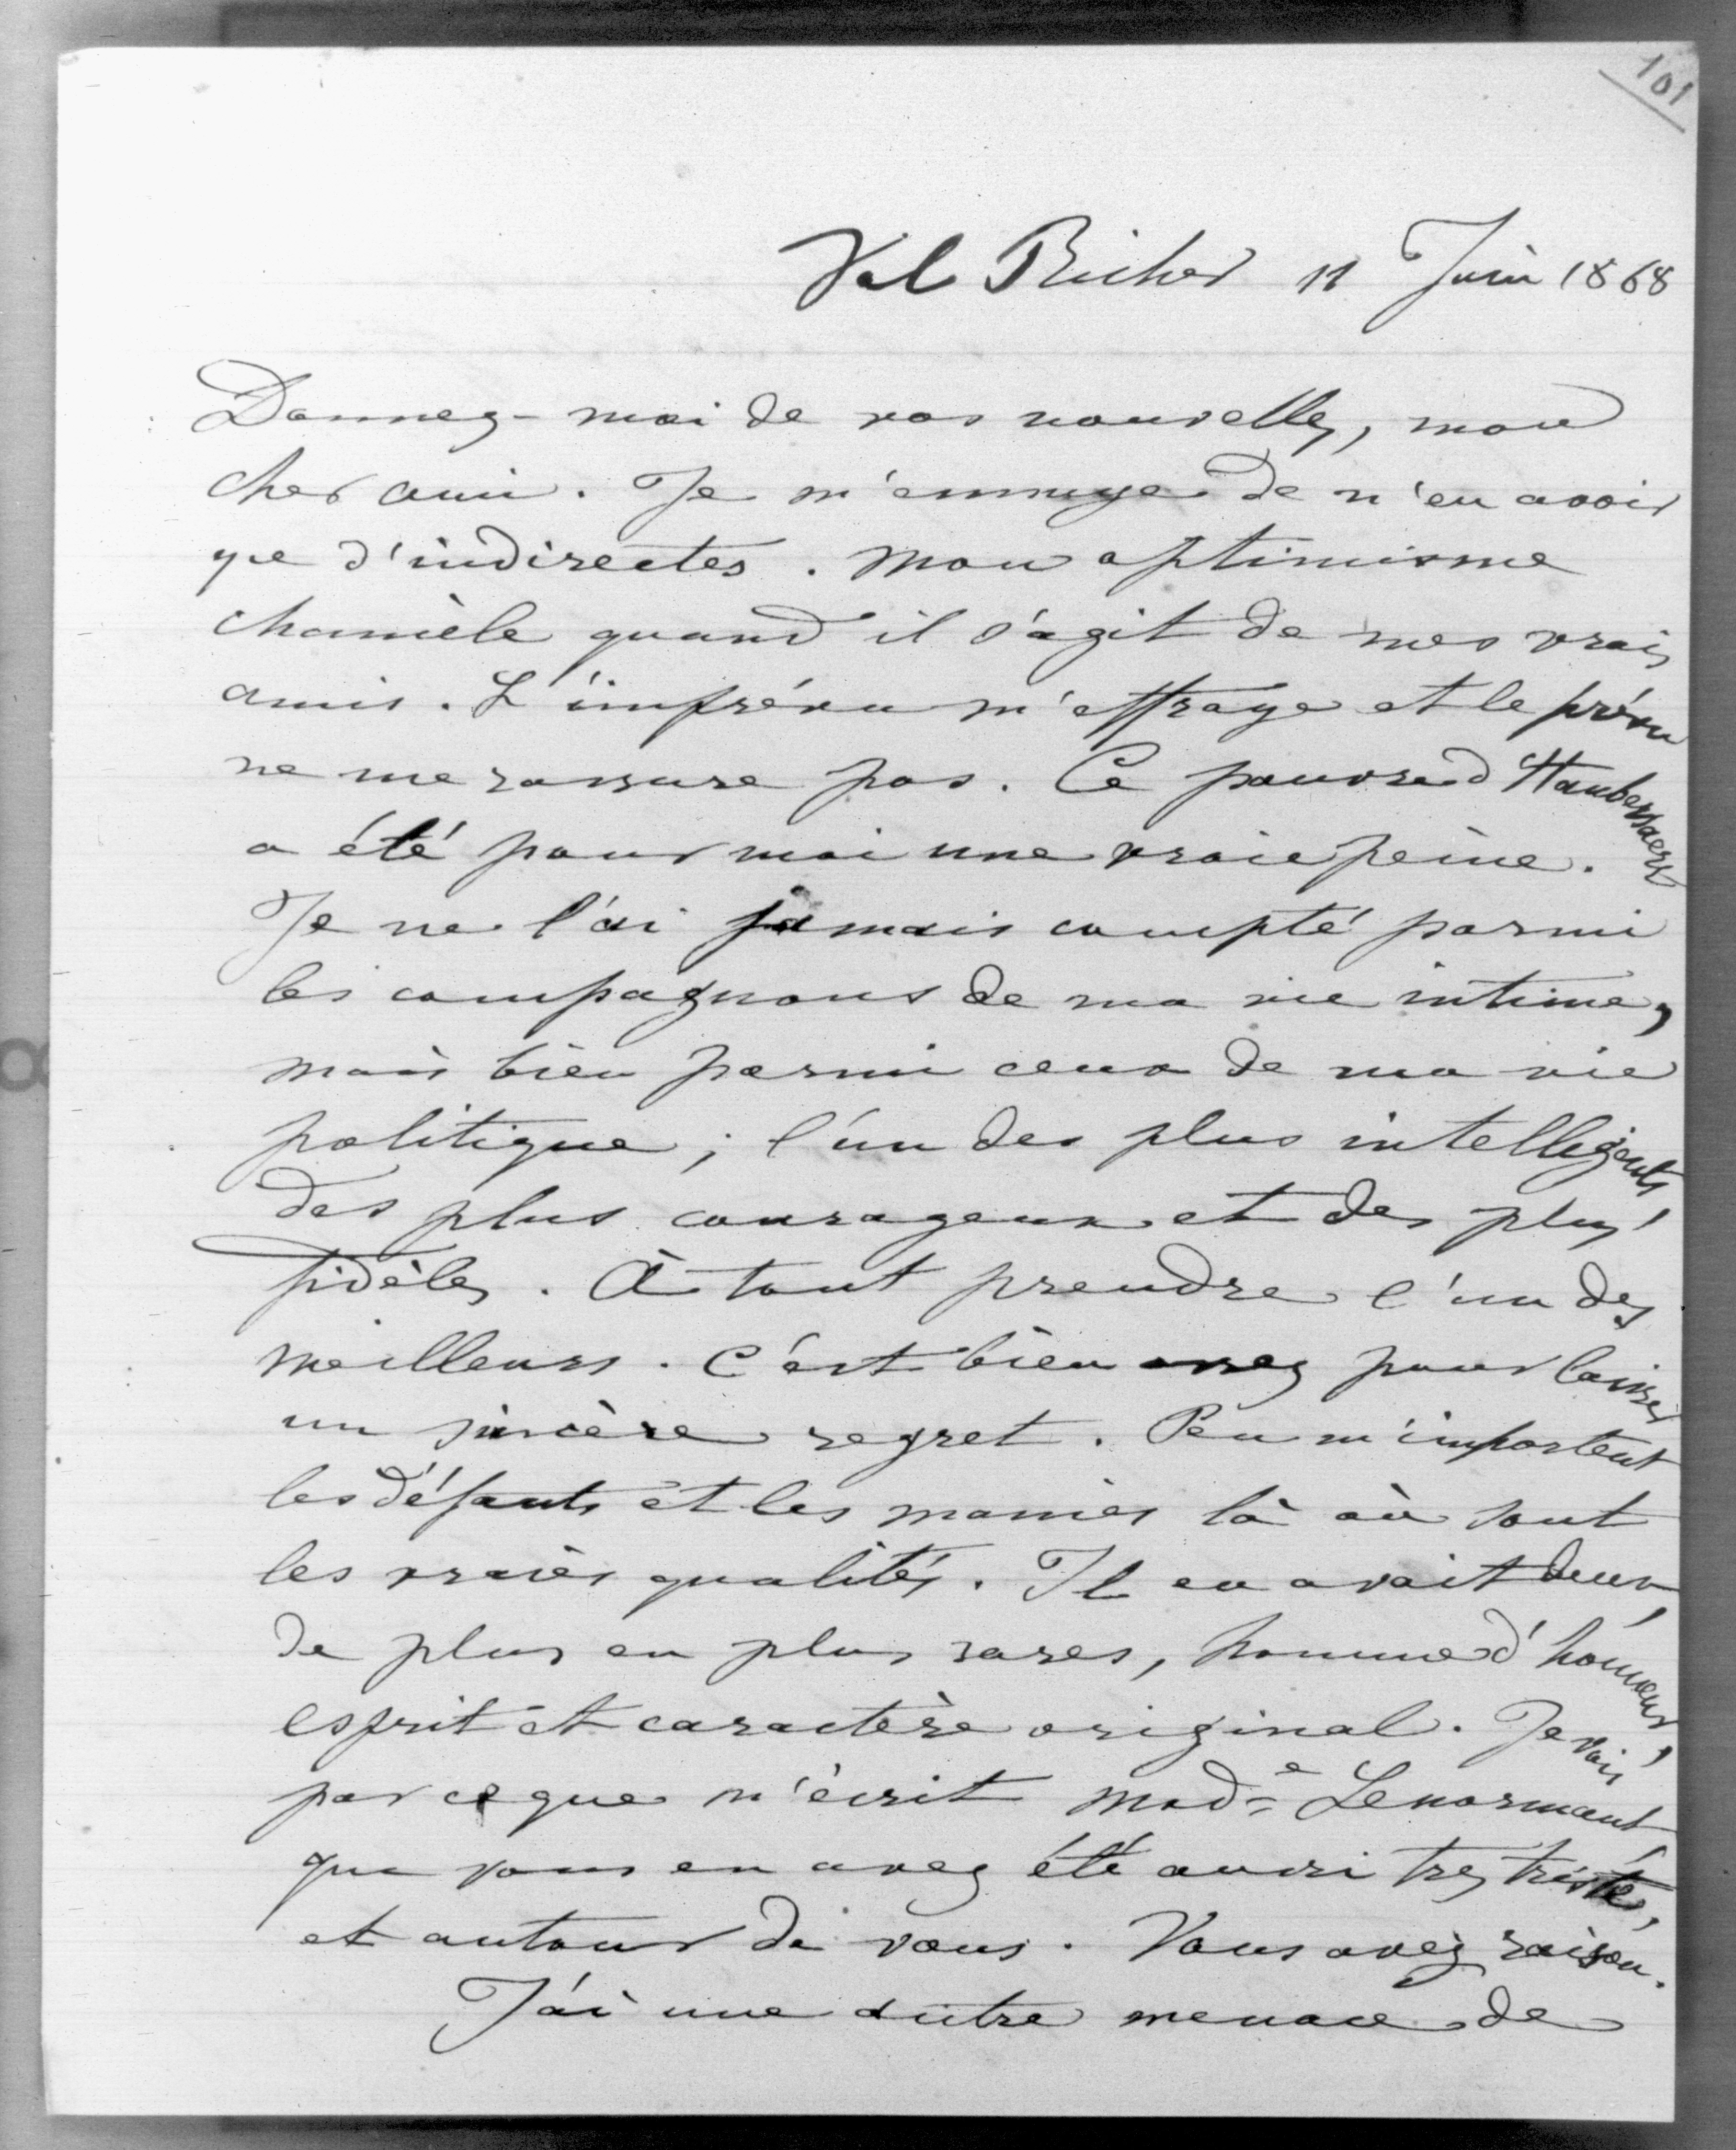 101
Val Richer 11 Juin 1868
Donnez-moi de vos nouvelles, mon
cher ami. Je m'ennuye de n'en avoir
que d'indirectes. Mon optimisme
chancèle quand il s'agit de mes vrais
amis. L'imprévu m'effraye et le prévu
ne me rassure pas. Ce pauvre d'Haubersaert
a été pour moi une vraie peine.
Je ne l'ai jamais compté parmi
les compagnons de ma vie intime,
mais bien parmi ceux de ma vie
politique ; l'un des plus intelligents,
des plus courageux et des plus
fidèles. À tout prendre l'un des
meilleurs. C'est bien assez pour laisser
un sincère regret. Peu m'importent
les défauts et les manies là où sont
les vraies qualités. Il en avait deux,
de plus en plus rares, homme d'honneur,
esprit et caractère original. Je vois,
par ce que m'écrit Mad.e Lenormant,
que vous en avez été aussi très triste,
et autour de vous. Vous avez raison.
J'ai une autre menace de